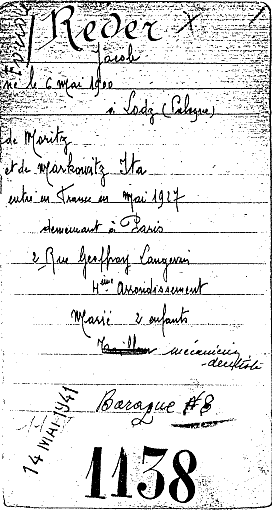 Reder
Jacob
né le 6 mai 1900
à Lodz (Pologne)
de Moritz
et de Markowitz Ita
entré en France en mai 1927
demeurant à Paris
2 Rue Geoffroy Langevin
4ème Arrondissement
Marié 2 enfants
mécanicien
-dentiste
Baraque #8
14 MAI 1941
1138